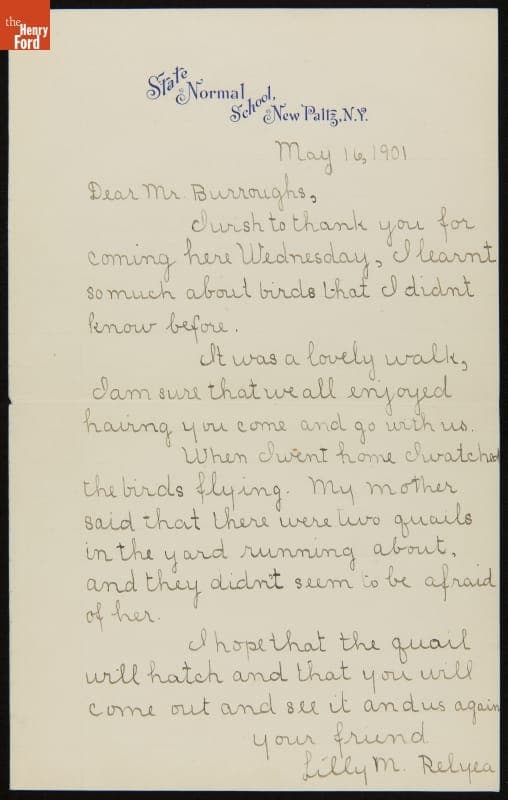 the
Henry
Ford
State
Normal
School,
New Paltz, N.Y.
May 16, 1901
Dear Mr. Burroughs,
I wish to thank you for
coming here Wednesday, I learnt
so much about birds that I didn't
know before.
It was a lovely walk,
I am sure that we all enjoyed
haivng you come and go with us.
When I went home I watched
the birds flying. My mother
said that there were two quails
in the yard running about,
and they didn't seem to be afraid
of her.
I hope that the quail
will hatch and that you will
come out and see it and us again
your friend
Lilly M. Relyea